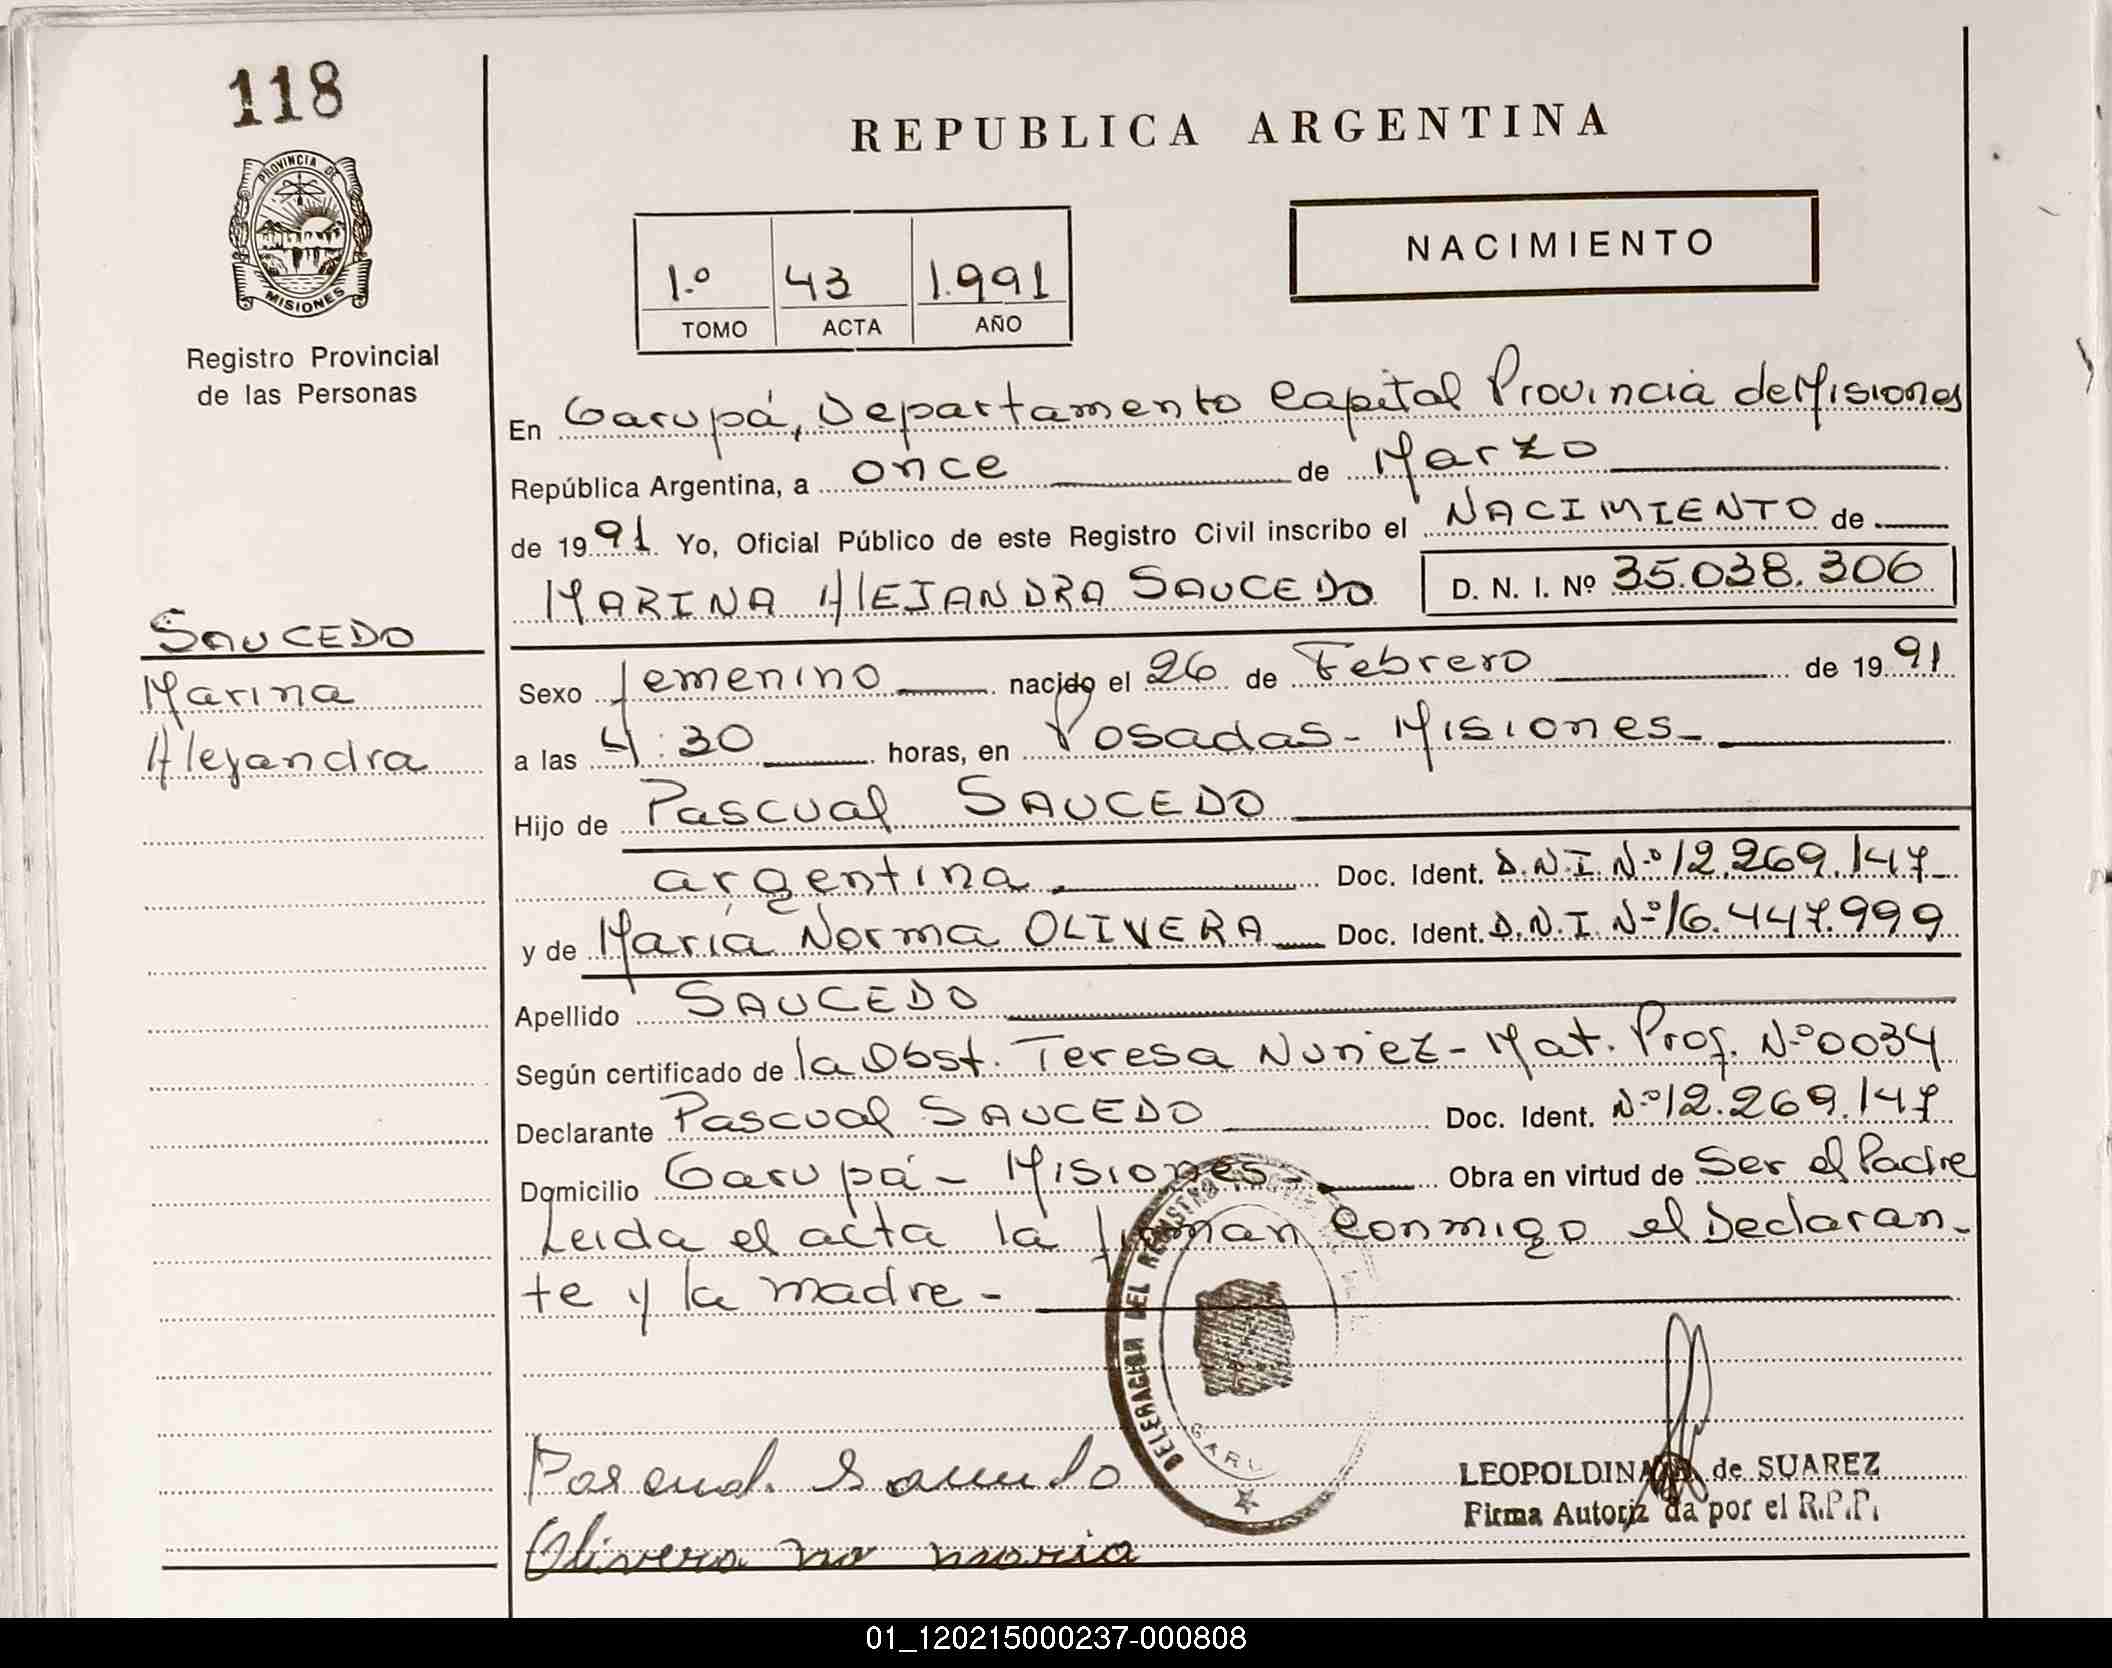 118
PROVINCIA DE
MISIONES
Registro Provincial
de las Personas
REPUBLICA ARGENTINA
1.º 43 1.991
TOMO ACTA AÑO
NACIMIENTO
En Garupá, Departamento Capital Provincia de Misiones
República Argentina, a once de Marzo
de 1991 Yo, Oficial Público de este Registro Civil inscribo el NACIMIENTO de
MARINA AlEJANDRA SAUCEDO D. N. I. Nº 35.038.306
SAUCEDO
Marina
Alejandra
Sexo femenino nacido el 26 de Febrero de 1991
a las 4:30 horas, en Posadas - Misiones -
Hijo de Pascual SAUCEDO
argentina. Doc. Ident. D.N.I. Nº 12.269.147
y de María Norma OLIVERA Doc. Ident. D.N.I. Nº 16.447.999
Apellido SAUCEDO
Según certificado de la Obst. Teresa Nuñez - Mat. Prof. Nº 0034
Declarante Pascual SAUCEDO Doc. Ident. Nº 12.269.147
Domicilio Garupá - Misiones - Obra en virtud de Ser el Padre
Leida el acta la firman conmigo el Declaran-
te y la madre -
DELEGACION DEL REGISTRO
GARU
Pascual Saucedo
LEOPOLDINA de SUAREZ
Firma Autoriz da por el R.P.P.
Olivera no maria
01_120215000237-000808